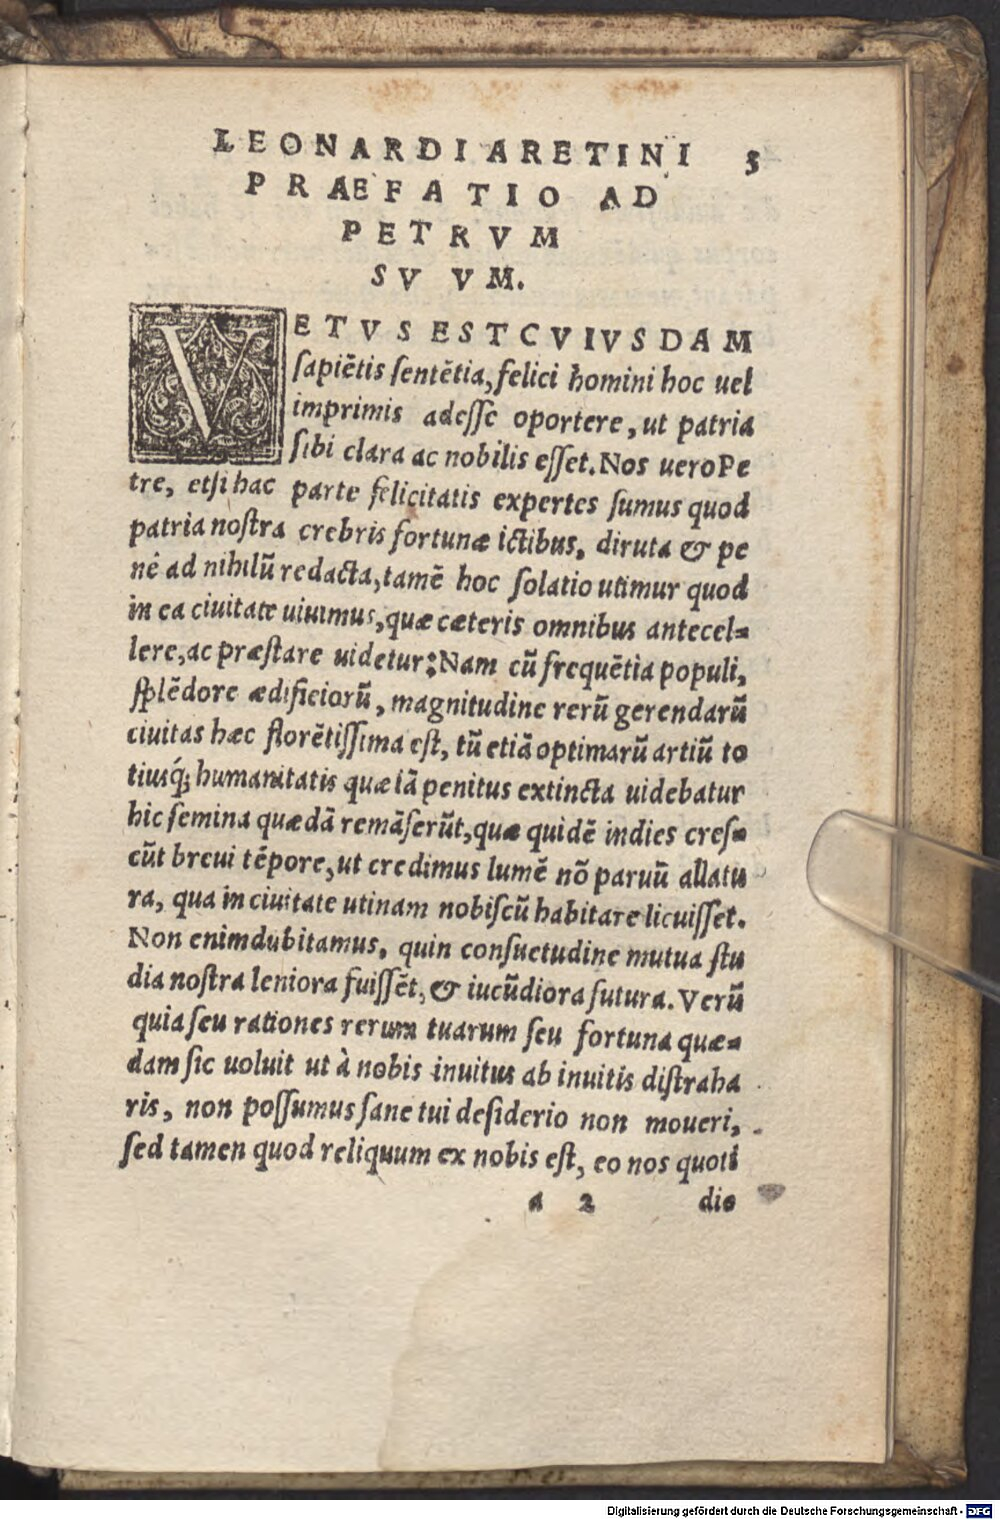 LEONARDI ARETINI 3
PRÆFATIO AD
PETRVM
SVVM.
VETVS EST CVIVSDAM
ſapiẽtis ſentẽtia, felici homini hoc uel
imprimis adeſſe oportere, ut patria
ſibi clara ac nobilis eſſet. Nos uero Pe
tre, etſi hac parte felicitatis expertes ſumus quod
patria noſtra crebris fortunæ ictibus, diruta & pe
nè ad nihilũ redacta, tamẽ hoc ſolatio utimur quod
in ea ciuitate uiuimus, quæ cæteris omnibus antecel=
lere, ac præſtare uidetur: Nam cũ frequẽtia populi,
ſplẽdore ædificiorũ, magnitudine rerũ gerendarũ
ciuitas hæc florẽtiſſima eſt, tũ etiã optimarũ artiũ to
tiusq́; humanitatis quæ iã penitus extincta uidebatur
hic ſemina quædã remãſerũt, quæ quidẽ indies creſ=
cũt breui tẽpore, ut credimus lumẽ nõ paruũ allatu
ra, qua in ciuitate utinam nobiſcũ habitare licuiſſet.
Non enim dubitamus, quin conſuetudine mutua ſtu
dia noſtra leniora fuiſſẽt, & iucũdiora futura. Verũ
quia ſeu rationes rerum tuarum ſeu fortuna quæ=
dam ſic uoluit ut à nobis inuitus ab inuitis diſtraha
ris, non poſſumus ſane tui deſiderio non moueri,
ſed tamen quod reliquum ex nobis eſt, eo nos quoti
a 2 die
Digitalisierung gefördert durch die Deutsche Forschungsgemeinschaft - DFG